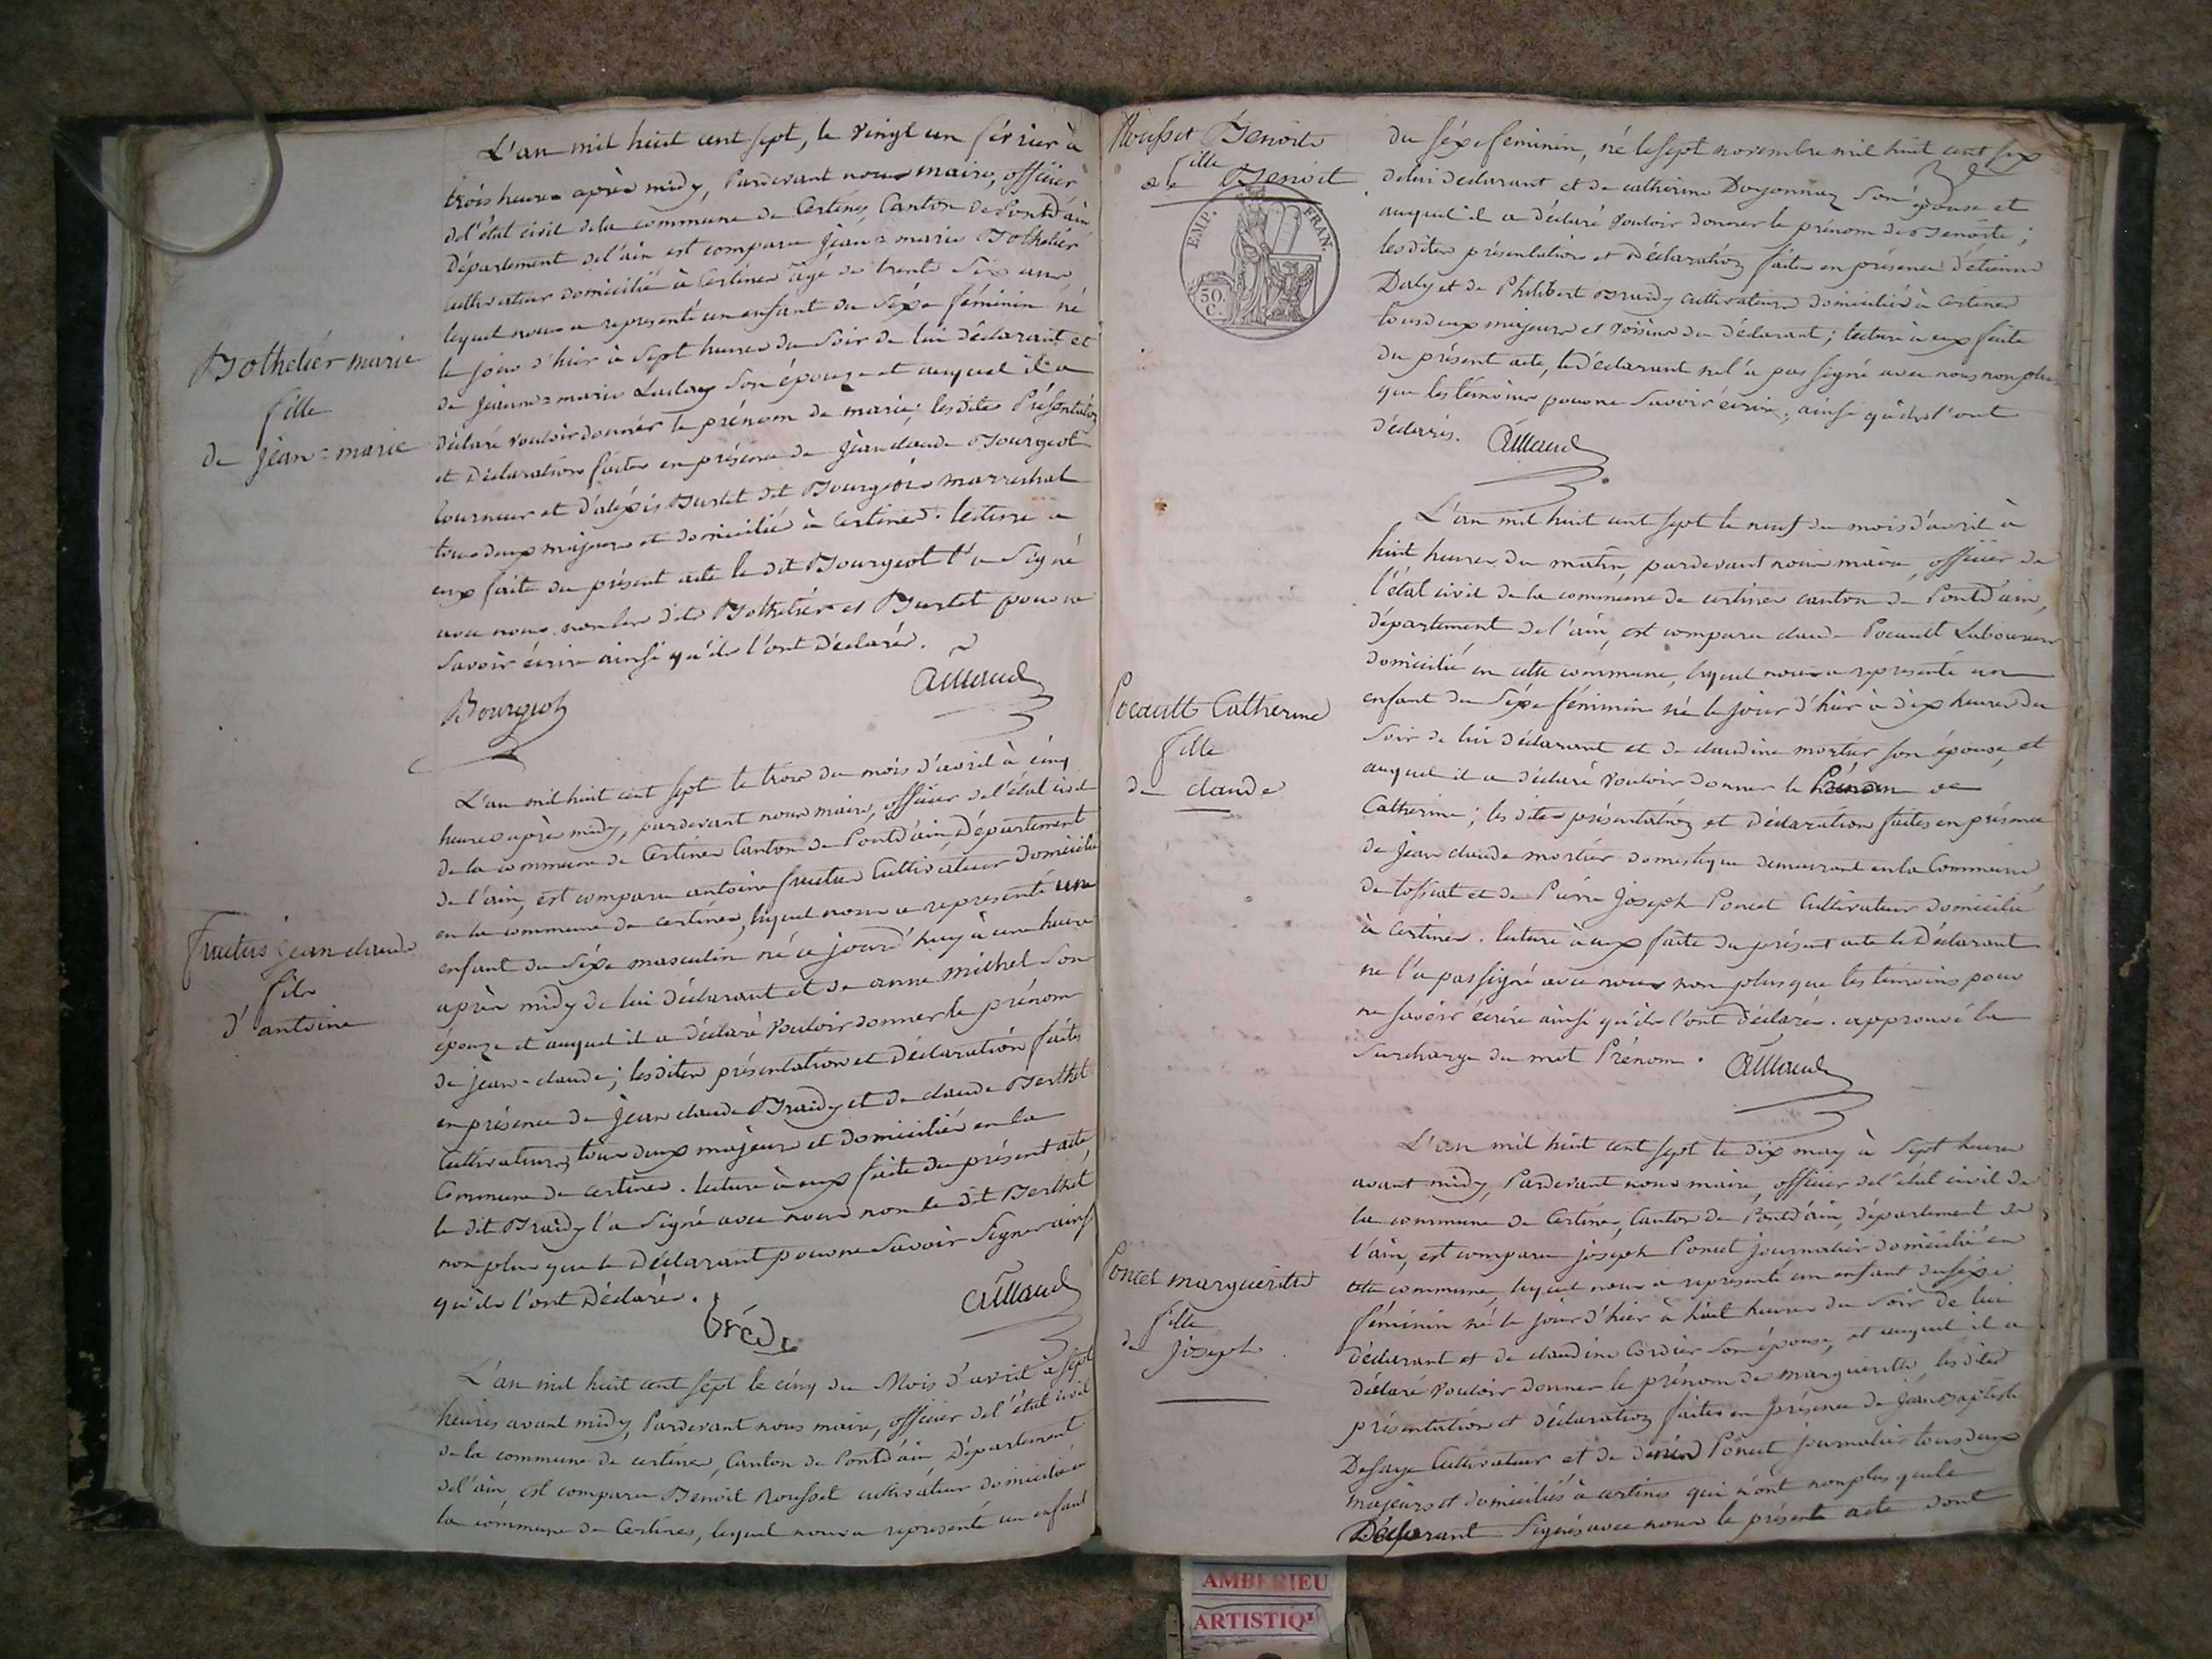 L'an mil huit cent sept, le vingt un février à
trois heures après midy, Pardevant nous maire, officier
del'état civil dela commune de Certines, Canton de Pontd'ain
Département del'ain est comparu jean=marie Bothelier
Cultivateur domicilié à Certines agé de trente six ans
lequel nous a representé un enfant du Séxe féminin né
le jour d'hier à Sept heures du Soir de lui déclarant, et
de jeanne=marie Son épouze et auquel il a
déclaré vouloir donner le prénom de marie; lesdites Présentation
et Déclaration faites en présence de jean claude Bourgeot
tourneur et d'aléxis Burtet dit Bourgeois marréchal
tous deux majeurs et domiciliés à Certines. lecture a
eux faite du présent acte le dit Bourgeot l'a Signé
avec nous non les dits Bothelier et Burtet pour ne
Savoir écrire ainsi qu'ils l'ont Déclarés.
Bothelier marie
fille
de jean=marie
Bourgeot
L'an mil huit cent sept le trois du mois d'avril à cinq
heures après midy, pardevant nous maire, officier del'état civil
de la commune de Certines Canton de Pontd'ain, Département
de l'ain, est comparu antoine fructus Cultivateur domicilié
en la commune de certines, lequel nous a representé un
enfant du Séxe masculin né ce jourd'huy à une heure
après midy de lui déclarant et de anne michel Son
épouze et auquel il a déclaré vouloir donner le prénom
de jean-claude; lesdites présentation et Déclaration faites
en présence de jean claude Braidy et de claude Berthet
Cultivateurs, tous deux majeurs et domiciliés en la
Commune de certines. lecture à eux faite du présent acte,
le dit Braidy l'a Signé avec nous non le dit Berthet
non plus que le Déclarant pour ne Savoir Signer ainsi
qu'ils l'ont Déclarés.
fructus jean claude
fils
d'antoine
L'an mil huit cent sept le cinq du Mois d'avril à sept
heures avant midy, Pardevant nous maire, officier del'état civil
de la commune de certines, Canton de Pontd'ain, Département
del'ain, est comparu Benoit Rousset cultivateur domicilié en
la commune de Certines, lequel nous a representé un enfant
Rousset Benoite
fille
de Benoit
EMP. FRAN.
50.
C.
du séxe féminin, né le sept novembre mil huit cent six
delui declarant et de catherine Doyonnaz Son épouse et
auquel il a déclaré vouloir donner le prénom de Benoite;
lesdites présentation et Déclaration faites en présence d'étienne
Daly et de Philibert Braidy cultivateurs domiciliés à Certines
tous deux majeurs et voisins du déclarant; lecture à eux faite
du présent acte, le Déclarant nel'a pas signé avec nous non plus
que les témoins pour ne Savoir écrire, ainsi qu'ils l'ont
déclarés.
L'an mil huit cent sept le neuf du mois d'avril à
huit heures du matin, pardevant nous maire, officier de
l'état civil de la commune de certines canton de Pontd'ain,
département del'ain, est comparu claude Pocault Laboureur
domicilié en cette commune, lequel nous a representé un
enfant du Séxe féminin né le jour d'hier à dix heures du
Soir de lui déclarant et de claudine mortier, son épouse, et
auquel il a déclaré vouloir donner le Prénom de
Catherine; les dites présentation et Déclaration faites en présence
de jean claude mortier domestique demeurant en la Commune
de tossiat et de Pierre joseph Poncet Cultivateur domicilié
à Certines. lecture à eux faite du présent acte le Déclarant
ne l'a pas signé avec nous non plus que les témoins pour
ne savoir écrire ainsi qu'ils l'ont déclarés. approuvé la
Surcharge du mot Prénom.
Pocault Catherine
fille
de claude
L'an mil huit cent sept le dix may à Sept heures
avant midy, Pardevant nous maire, officier del'état civil de
la commune de Certines, Canton de Pontd'ain, département de
l'ain, est comparu joseph Poncet journalier domicilié en
cette commune, lequel nous a representé un enfant du séxe
féminin né le jour d'hier à huit heures du Soir de lui
déclarant et de claudine Cordier son épouse, et auquel il a
déclaré vouloir donner le prénom de marguerite lesdites
présentation et déclaration faites en présence de jean Baptiste
Desaye Cultivateur et de denis Poncet journalier tous deux
majeurs et domiciliés à certines qui n'ont non plus que le
Déclarant Signés avec nous le présent acte dont
Poncet marguerite
fille
de joseph
AMBERIEU
ARTISTIQ